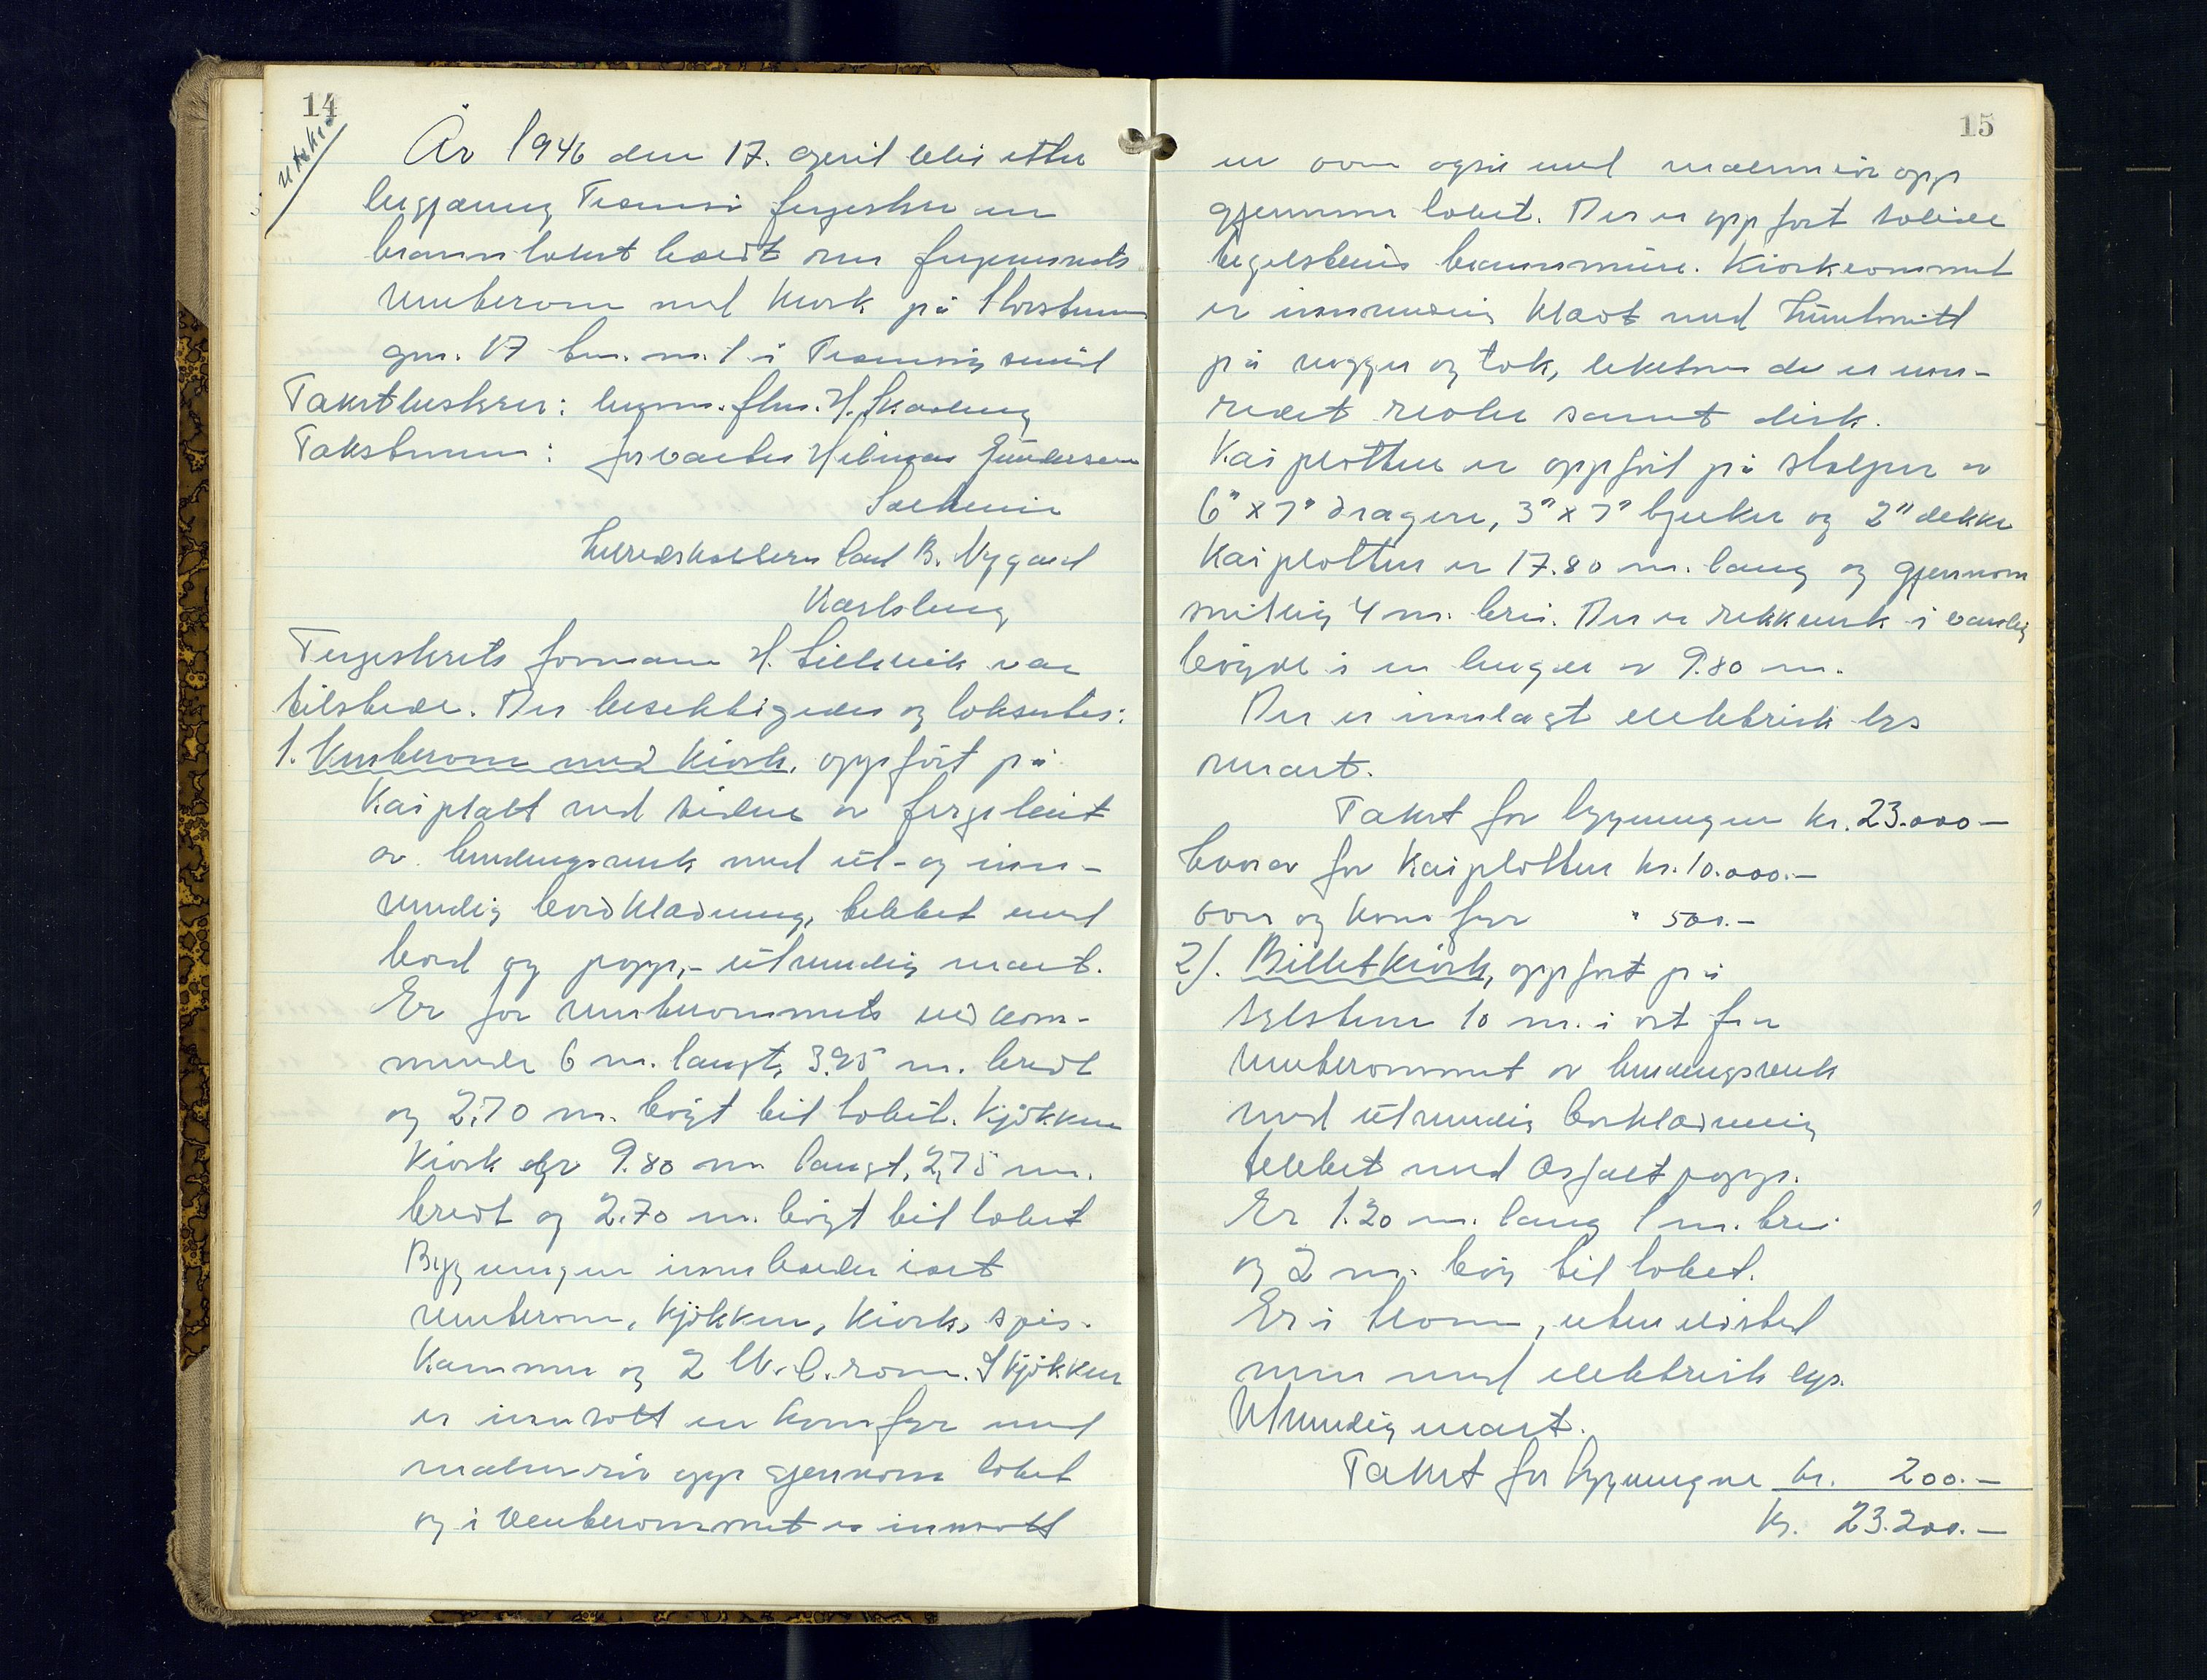 14
År 1946 den 17. april blei etter
begjæring Tromsø fergestyre en
branntakst holdt over fergevesnets
venterom med kiosk på Storsteinnes
gnr. 17 bnr. nr. 1 i Tromsøysund
Takstbestyrer: lensm. flm. H. Skavberg
Takstmenn: forvalter Hilmar Gundersen
herredskasserer Carl B. Nygaard
Fergestyrets formann H. Lillevik var
tilstede. Der besiktigedes og taksertes:
1. Venterom med kiosk, oppført på
kaiplatt ved siden av fergeleiet
av bindingsverk med ut- og inn-
vendig bordkledning, tekket med
bord og papp, - utvendig malt.
Er for venterommets vedkom-
mende 6 m. langt, 3.95 m. bredt
og 2,70 m. høgt til taket. Kjøkken
kiosk dgr 9.80 m langt, 2,75 m.
bredt og 2.70 m. høgt til taket
Bygningen inneholder i alt
venterom, kjøkken, kiosk, spis-
kammer og 2 W.C. rom. I kjøkken
er innsatt en komfyr med
malmrør opp gjennom taket
og i venterommet er innsatt
15
en ovn også med malmrør opp
gjennom taket. Der er oppført solide
teglsteins brannmure. Kioskrommet
er innvendig kledt med huntonitt
på vegger og tak, likesom der er inn-
redet reoler samt disk.
Kaiplatten er oppført på stolper av
6" x 7" dragere, 3" x 7" bjelker og 2" dekke
Kaiplatten er 17.80 m. lang og gjennom
snitlig 4 m. brei. Der er rekkverk i vanlig
høgde i en lengde av 9.80 m.
Der er innlagt elektrisk lys
Takst for bygningen kr. 23.000 -
hvorav for kaiplatten kr. 10.000. -
ovn og komfyr " 500. -
2). Billetkiosk, oppført på
10 m. i øst fra
venterommet av bindingsverk
med utvendig bordkledning
tekket med asfaltpapp.
Er 1.20 m. lang 1 m. brei
og 2 m. høg til taket.
Er i ett rom, uten ildsted
men med elektrisk lys.
Utvendig malt.
Takst for bygningen kr. 200. -
Kr. 23.200. -